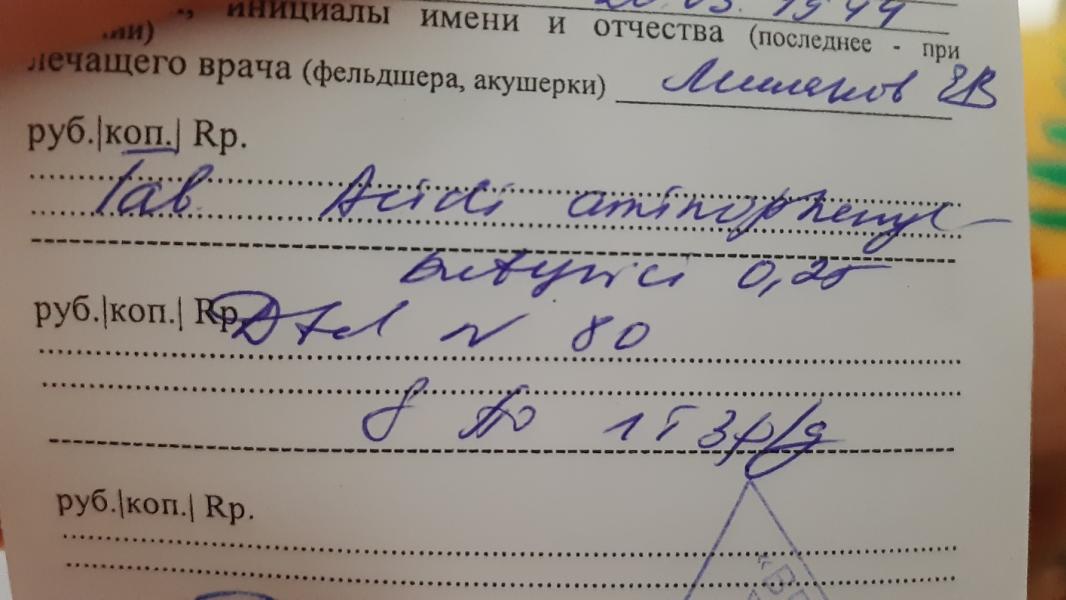 20.03.1944
инициалы имени и отчества (последнее - при
ии)
лечащего врача (фельдшера, акушерки)
руб.|коп.| Rp.
Tab. Acidi aminophenyl-
butyrici 0,25
руб.|коп.| Rp.
Dtd N 80
S по 1т 3р/д
руб.|коп.| Rp.